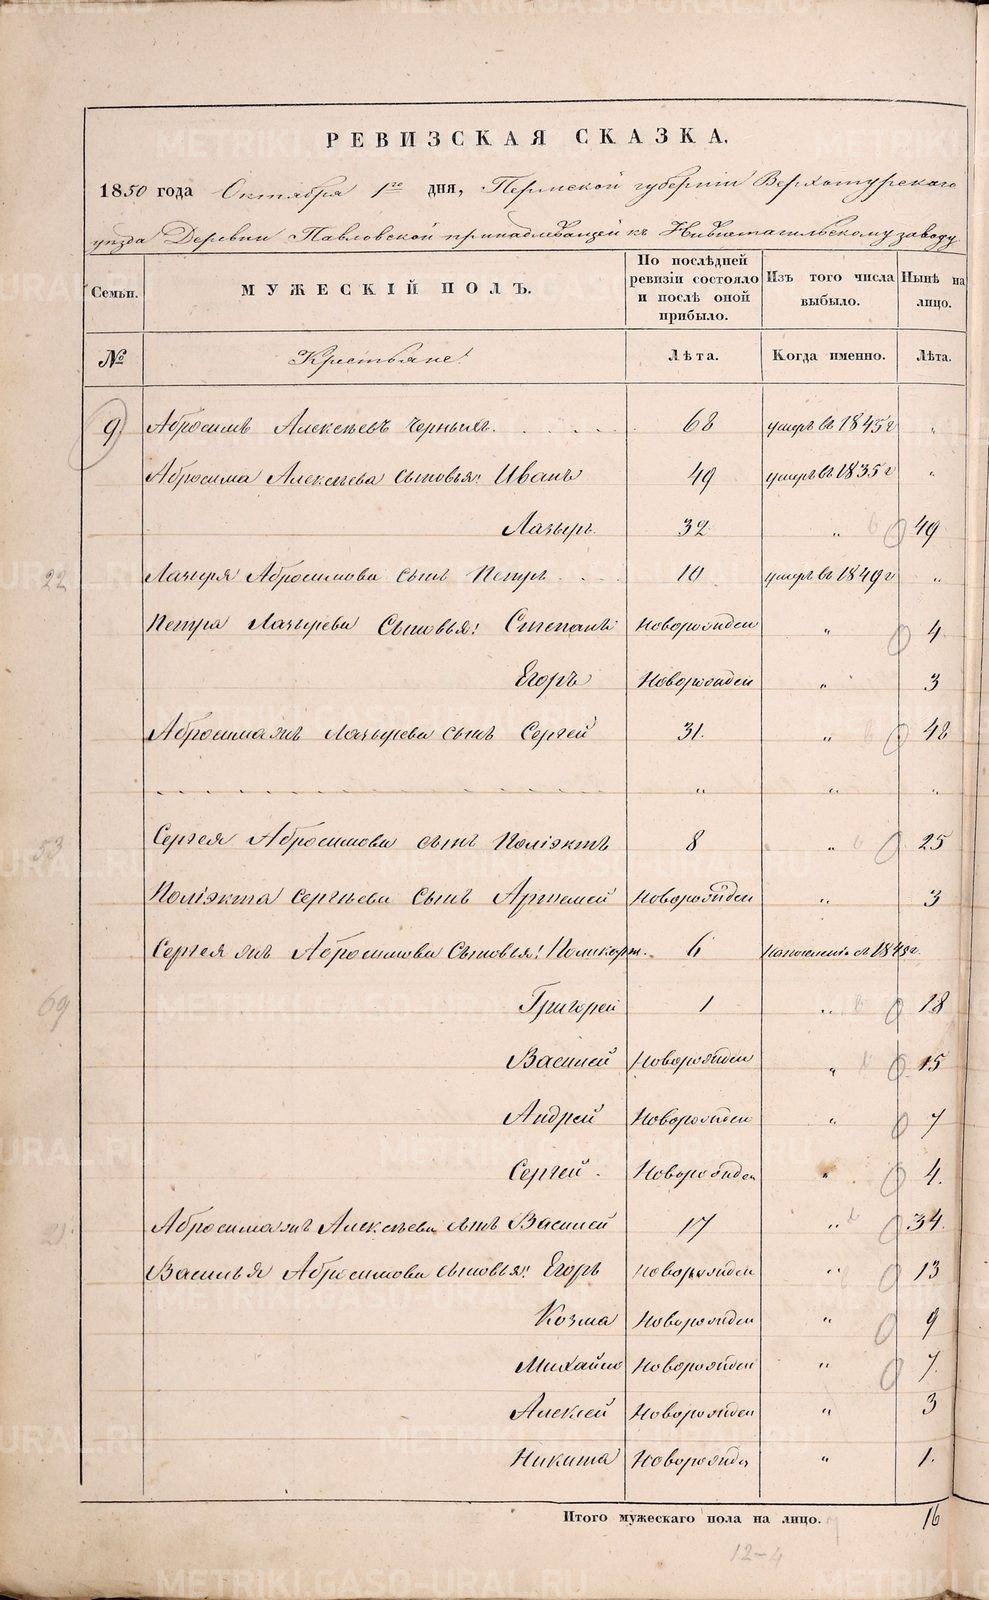 РЕВИЗСКАЯ СКАЗКА.
1850 года Октября 1го дня, Пермской губернiи Верхотурскаго
уезда Деревни Павловской принадлежащей къ Нижнетагильскому заводу
Семьи. МУЖЕСКІЙ ПОЛЪ. По послѣдней ревизіи состояло и послѣ оной прибыло. Изъ того числа выбыло. Нынѣ на лицо.
№ Крестьяне: Лѣта. Когда именно. Лѣта.
9 Абросимъ Алексѣевъ Черныхъ. 68 умеръ въ 1845 г "
Абросима Алексѣева сыновья: Иванъ 49 умеръ въ 1835 г "
Лазырь. 32 " 49
22 Лазыря Абросимова сынъ Петръ 10 умеръ въ 1849 г "
Петра Лазырева Сыновья: Степанъ Новорожден " 4
Егоръ Новорожден " 3
Абросима жъ Лазырева сынъ Сергей 31. " 48
" " "
53 Сергея Абросимова сынъ Поліэктъ 8 " 25
Поліэкта Сергѣева Сынъ Артемей Новорожден " 3
Сергея жъ Абросимова Сыновья: Поликарп. 6
69 Григорей 1 " 18
Василей Новорожден " 15
Андрей Новорожден " 7
Сергей. Новорожден " 4.
21. Абросима жъ Алексѣева сынъ Василей 17 " 34.
Василья Абросимова сыновья: Егоръ Новорожден " 13
Козма Новорожден " 9
Михайло Новорожден " 7.
Алексей Новорожден " 3
Никита Новорожден " 1.
Итого мужескаго пола на лицо. 16
12-4
METRIKI.GASO-URAL.RU